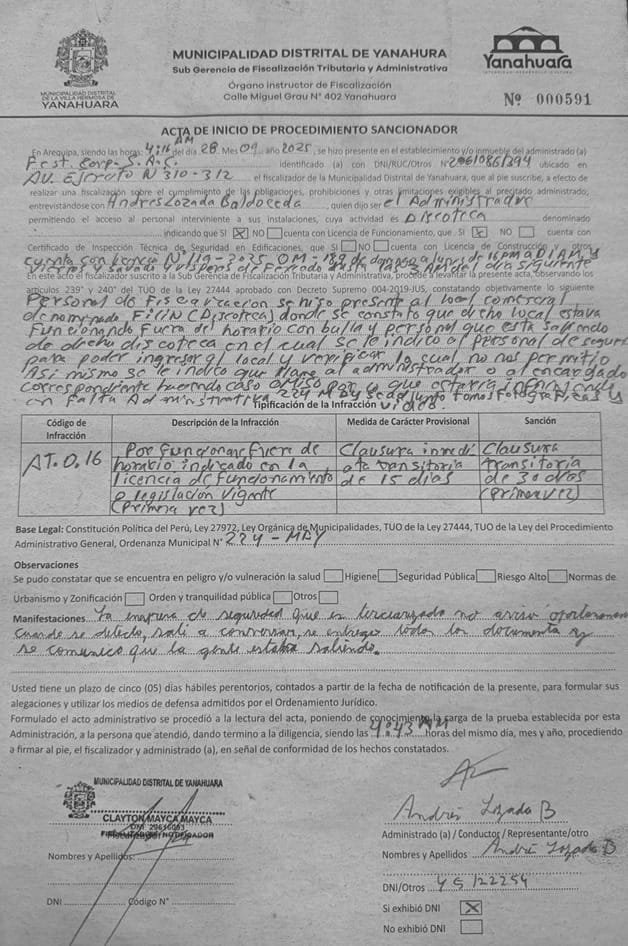 MUNICIPALIDAD DISTRITAL
DE LA VILLA HERMOSA DE
YANAHUARA
MUNICIPALIDAD DISTRITAL DE YANAHURA
Sub Gerencia de Fiscalización Tributaria y Administrativa
Órgano Instructor de Fiscalización
Calle Miguel Grau N° 402 Yanahuara
Yanahuara
Nº 000591
ACTA DE INICIO DE PROCEDIMIENTO SANCIONADOR
En Arequipa, siendo las horas: 4:16 AM del día 28 Mes 09 año 2025, se hizo presente en el establecimiento y/o inmueble del administrado (a)
Fest. Corp. S.A.C. identificado (a) con DNI/RUC/Otros N° ubicado en
AV. Ejercito N 310-312 el fiscalizador de la Municipalidad Distrital de Yanahuara, que al pie suscribe, a efecto de
realizar una fiscalización sobre el cumplimiento de las obligaciones, prohibiciones y otras limitaciones exigibles al precitado administrado,
entrevistándose con Andres Lozada Baldoceda, quien dijo ser el Administrador
permitiendo el acceso al personal interviniente a sus instalaciones, cuya actividad es Discoteca denominado
indicando que SI X NO cuenta con Licencia de Funcionamiento, que SI X NO cuenta con
Certificado de Inspección Técnica de Seguridad en Edificaciones, que SI NO cuenta con Licencia de Construcción y otros
cuenta con N° 119-2025 OM-189 de domingo a lunes de 16 pm a 01 AM y
viernes y savado y visperas de Feriado asta las 3 AM del dia siguiente
En este acto el fiscalizador suscrito a la Sub Gerencia de Fiscalización Tributaria y Administrativa, procede a levantar la presente acta, observando los
artículos 239° y 240° del TUO de la Ley 27444 aprobado con Decreto Supremo 004-2019-JUS, constatando objetivamente lo siguiente
Personal de Fiscalización se hiso presente al local comercial
denominado FILIN (Discoteca) donde se constato que dicho local estava
Funcionando Fuera del horario con bulla y personal que esta saliendo
de dicho discoteca en el cual se le indico al personal de seguri
para poder ingresar al local y verificar lo cual no nos permitio
Asi mismo se le indico que llame al administrador o al encargado
correspondiente haciendo caso OMISO por lo que estaria infringiendo
con Falta Administrativa 224 MDY se adjunto tomas Fotograficas y
video.
Tipificación de la Infracción
Código de Infracción Descripción de la Infracción Medida de Carácter Provisional Sanción
AT.0.16 Por Funcionar Fuera de Clausura inmedi Clausura
horario indicado en la ata transitoria transitoria
licencia de Funcionamiento de 15 dias de 30 dias
o legislación vigente (Primera vez)
(Primera vez)
Base Legal: Constitución Política del Perú, Ley 27972, Ley Orgánica de Municipalidades, TUO de la Ley 27444, TUO de la Ley del Procedimiento
Administrativo General, Ordenanza Municipal N° 224 - MDY
Observaciones
Se pudo constatar que se encuentra en peligro y/o vulneración la salud Higiene Seguridad Pública Riesgo Alto Normas de
Urbanismo y Zonificación Orden y tranquilidad pública Otros
Manifestaciones La empresa de seguridad que es terciarizado no aviso oportunamente
cuando se detecto, sali a conversar, se entrego todos los documentos y
se comunico que la gente estaba saliendo.
Usted tiene un plazo de cinco (05) días hábiles perentorios, contados a partir de la fecha de notificación de la presente, para formular sus
alegaciones y utilizar los medios de defensa admitidos por el Ordenamiento Jurídico.
Formulado el acto administrativo se procedió a la lectura del acto, poniendo de conocimiento la carga de la prueba establecida por esta
Administración, a la persona que atendió, dando termino a la diligencia, siendo las 4:43 AM horas del mismo día, mes y año, procediendo
a firmar al pie, el fiscalizador y administrado (a), en señal de conformidad de los hechos constatados.
MUNICIPALIDAD DISTRITAL DE YANAHUARA
CLAYTON MAYCA MAYCA
FISCALIZADOR NOTIFICADOR
Nombres y Apellidos:
DNI Código N°
Andrés Lozada B
Administrado (a) / Conductor / Representante/otro
Nombres y Apellidos Andrés Lozada B
DNI/Otros 45122254
Si exhibió DNI X
No exhibió DNI